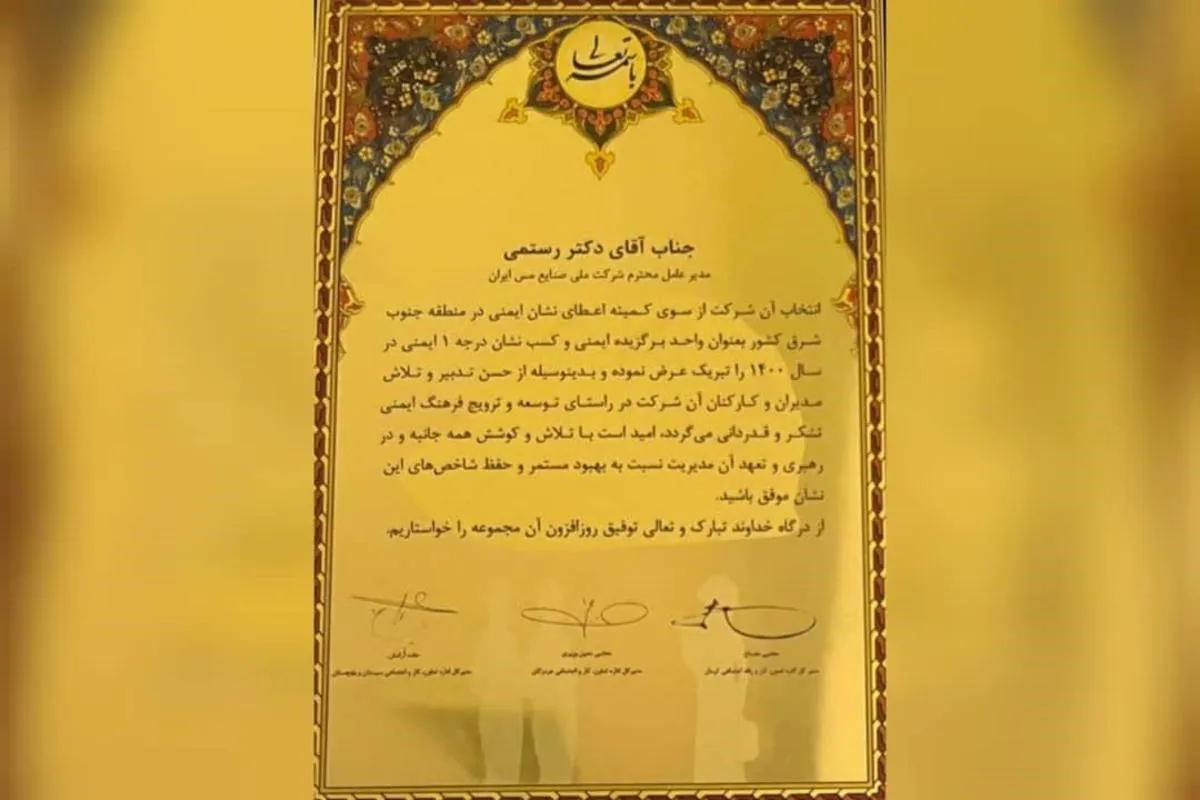 باسمه تعالی
جناب آقای دکتر رستمی
مدیر عامل محترم شرکت ملی صنایع مس ایران
انتخاب آن شرکت از سوی کمیته اعطای نشان ایمنی در منطقه جنوب
شرق کشور بعنوان واحد برگزیده ایمنی و کسب نشان درجه ۱ ایمنی در
سال ۱۴۰۰ را تبریک عرض نموده و بدینوسیله از حسن تدبیر و تلاش
مدیران و کارکنان آن شرکت در راستای توسعه و ترویج فرهنگ ایمنی
تشکر و قدردانی می‌گردد، امید است با تلاش و کوشش همه جانبه و در
رهبری و تعهد آن مدیریت نسبت به بهبود مستمر و حفظ شاخص‌های این
نشان موفق باشید.
از درگاه خداوند تبارک و تعالی توفیق روزافزون آن مجموعه را خواستاریم.
مدیر کل اداره تعاون، کار و رفاه اجتماعی کرمان
مدیر کل اداره تعاون، کار و اجتماعی هرمزگان
مدیر کل اداره تعاون، کار و اجتماعی سیستان و بلوچستان